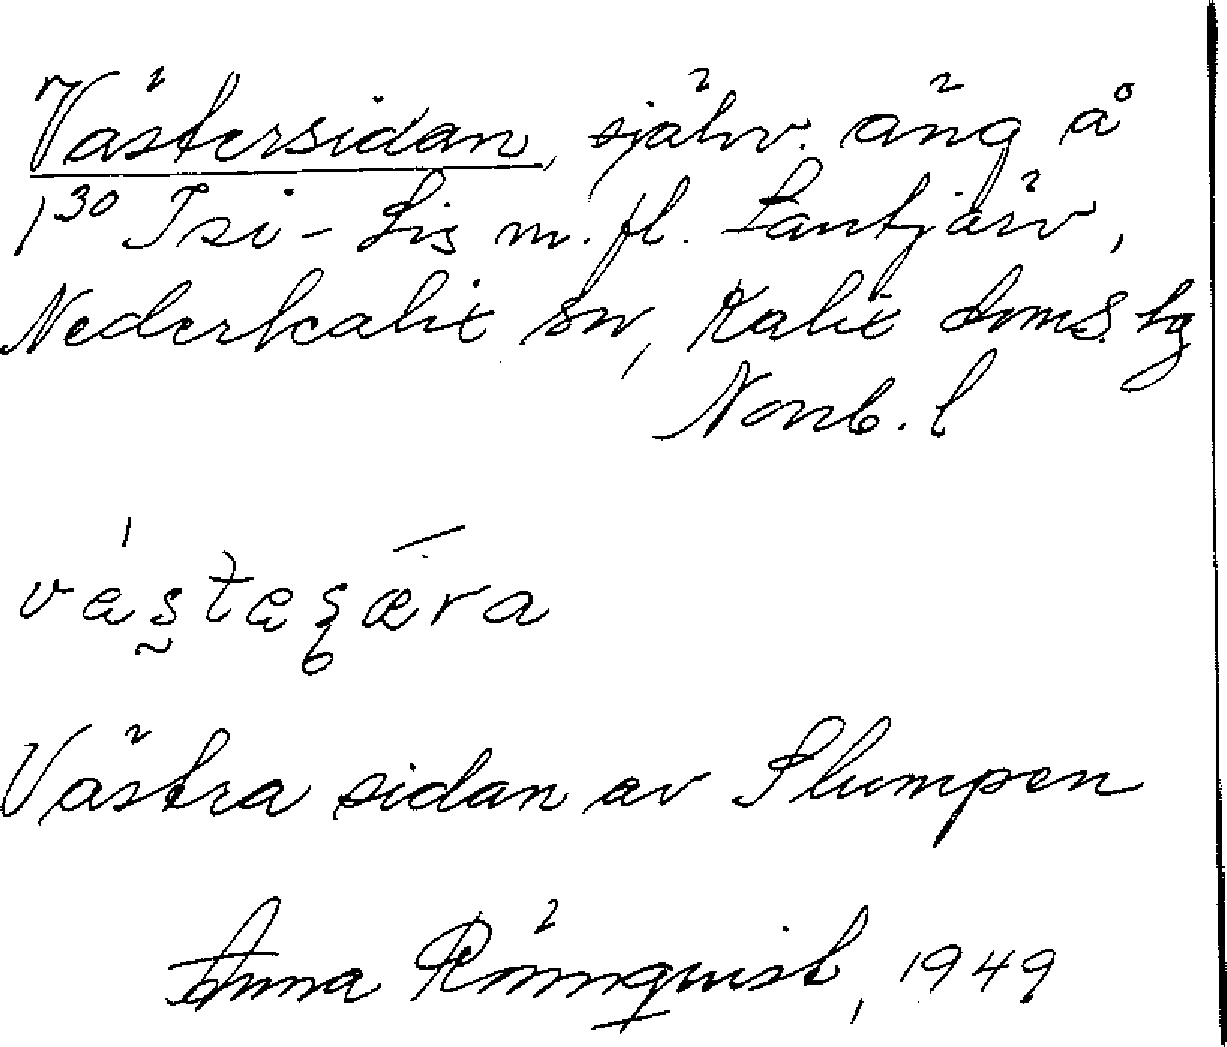 Västersidan, självr. äng å
1³⁰ Isi-Lis m.fl. Säntjärv,
Nederkalix sn, Kalix doms. tg
Norrb. l
Västra sidan av Slumpen
Anna Rönnquist, 1949